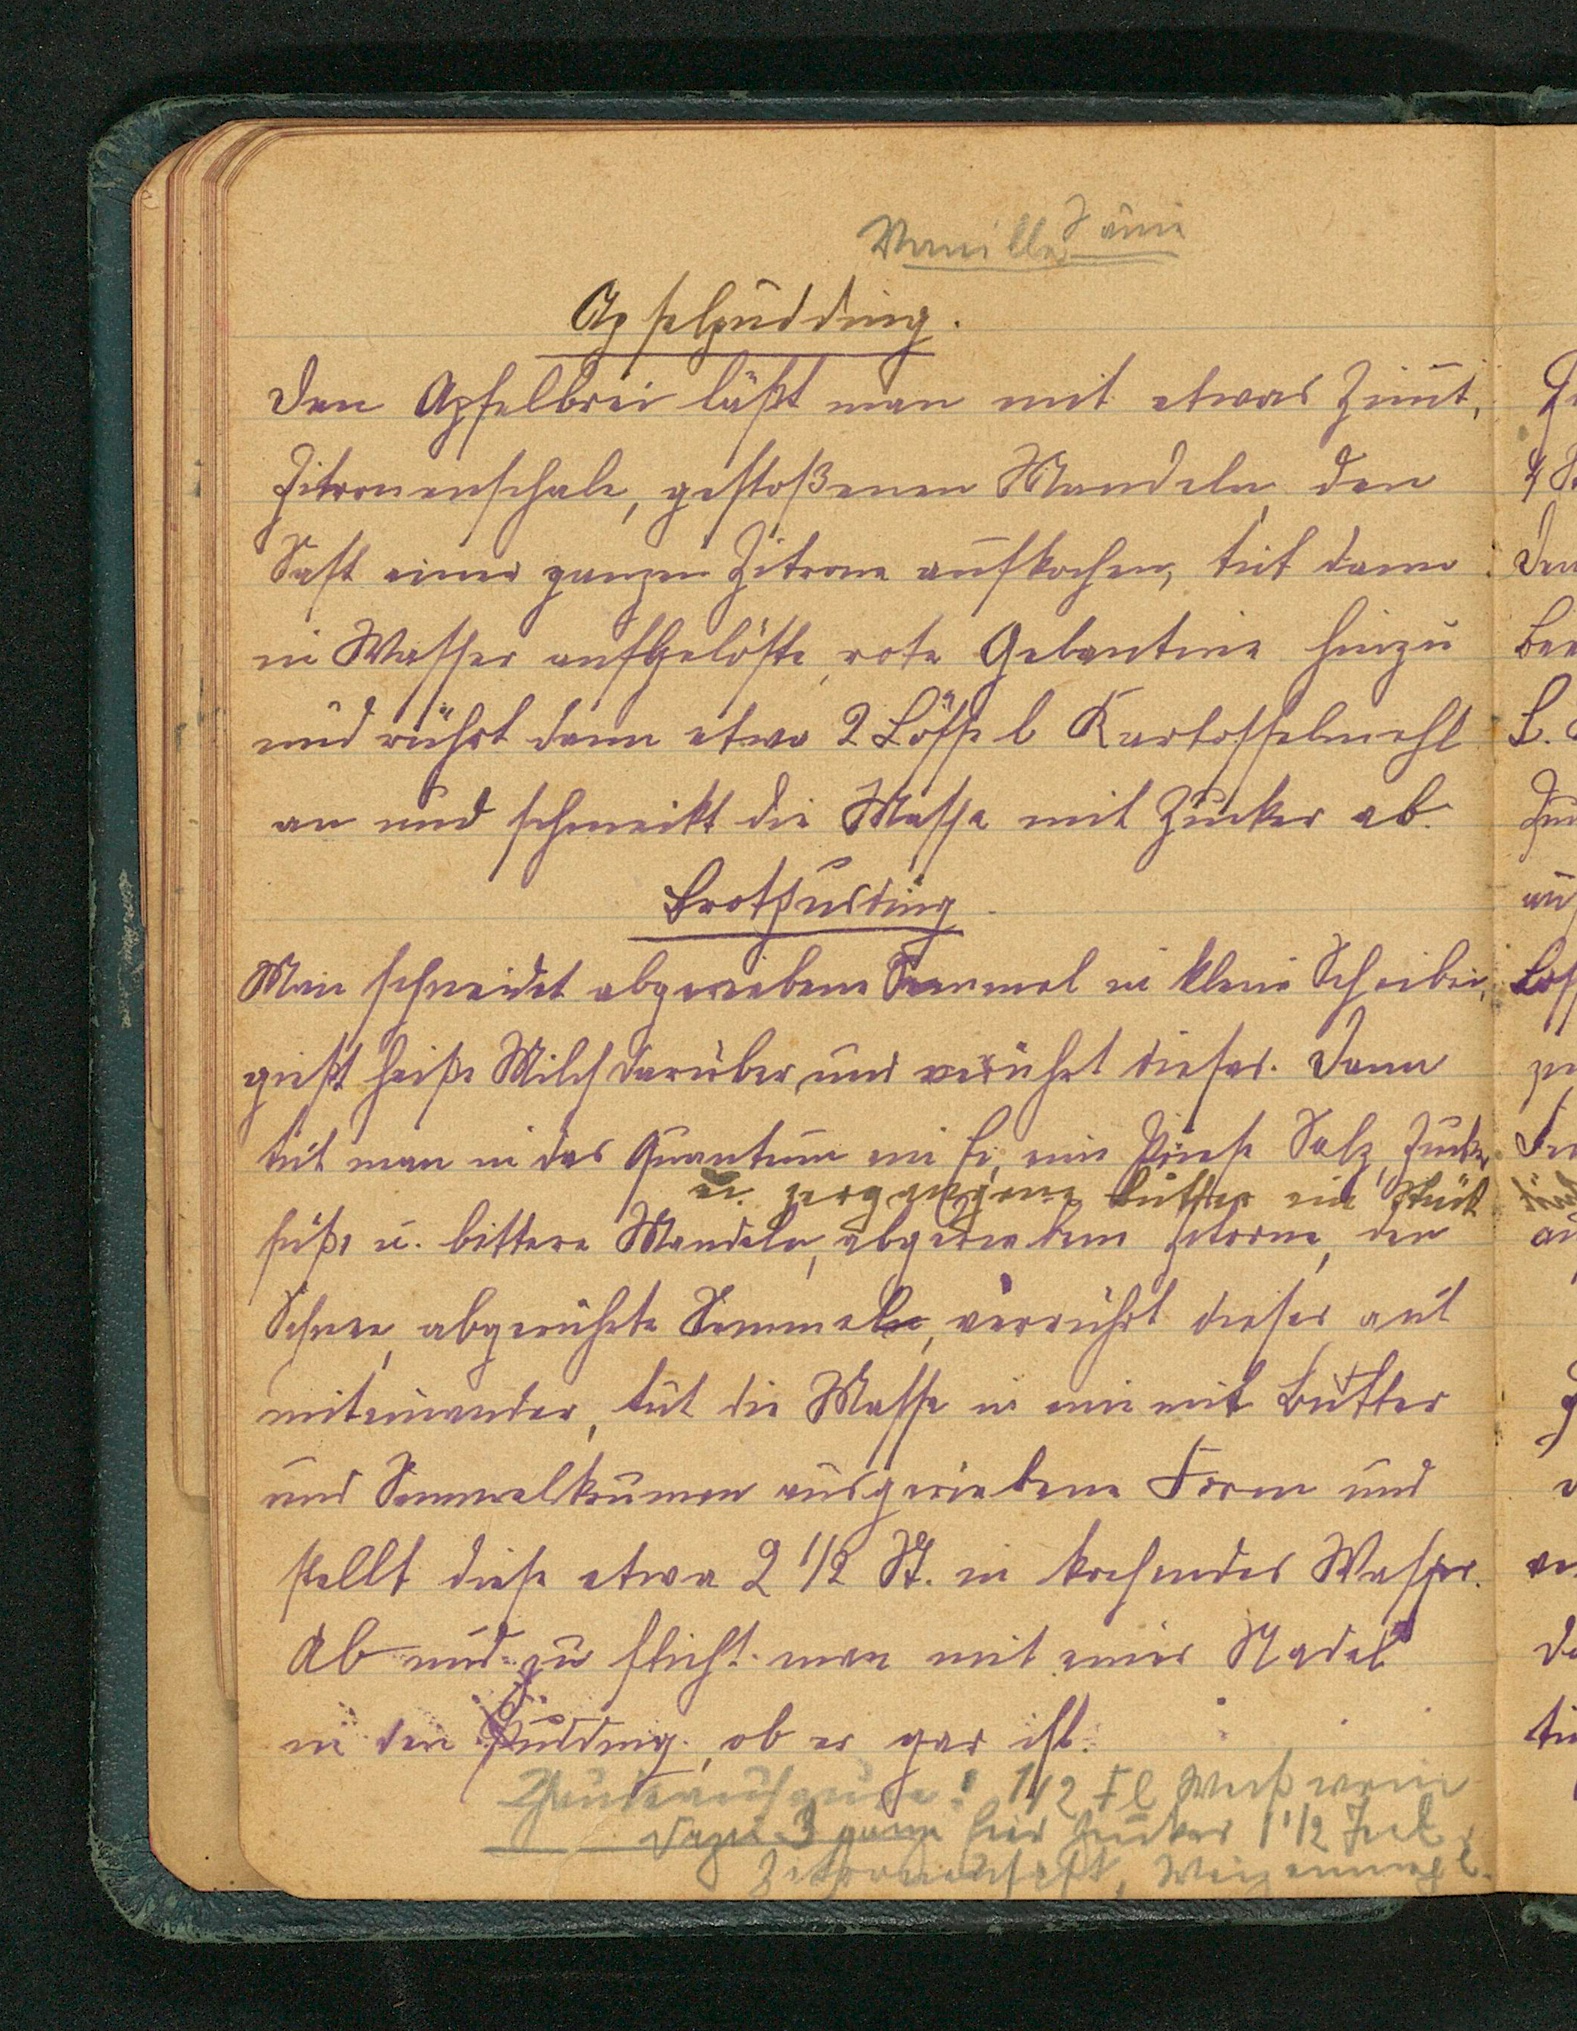 Vanille
Apfelpudding.
Den Apfelbrei läßt man mit etwas Zimt,
Zitronenschale, gestoßenen Mandeln, den
Saft einer ganzen Zitrone aufkochen, tut dann
in Wasser aufgelöste, rote Gelantine hinzu
und rührt dann etwa 2 Löffel Kartoffelmehl
an und schmeckt die Masse mit Zucker ab.
Brotpudding
Man schneidet abgeriebene Semmel in kleine Scheiben,
gießt heiße Milch darüber, und verrührt dieses. Dann
tut man in das Quantum ein Ei, eine Prise Salz, Zucker
u. zergangene Butter ein Stück
süße u. bittere Mandeln, abgeriebene Zitrone, den
Schnee, abgerührte Semmel, verrührt dieses gut
miteinander, tut die Masse in eine mit Butter
und Semmelkrumen ausgeriebene Form und
stellt diese etwa 2 1/2 St. in kochendes Wasser.
Ab und zu sticht man mit einer Nadel
in den Pudding, ob er gar ist.
1/2 Fl Weißwein
3 ganze Eier Zucker 1 1/2
Zitronensaft, Weizenmehl.